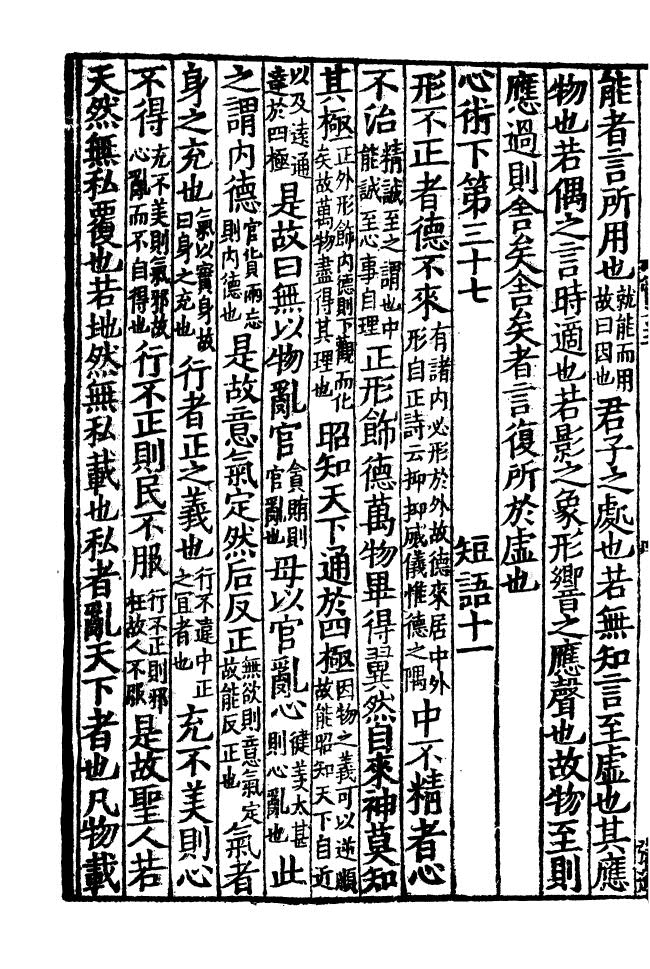 能者言所用也就能而用故曰因也君子之處也若無知言至虛也其應
物也若偶之言時適也若影之象形響之應聲也故物至則
應過則舍矣舍矣者言復所於虛也
心術下第三十七 短語十一
形不正者德不來有諸内必形於外故德來居中外形自正詩云抑抑威儀惟德之隅中不精者心
不治精誠至之謂也中能誠至心事自理正形飾德萬物畢得翼然自來神莫知
其極正外形飾内德則下觀而化矣故萬物盡得其理也昭知天下通於四極因物之義可以逆順故能昭知天下自近
以及遠通達於四極是故曰無以物亂官貪賄則官亂也毋以官亂心健羡太甚則心亂也此
之謂内德官貨兩忘則内德也是故意氣定然后反正無欲則意氣定故能反正也氣者
身之充也氣以實身故曰身之充也行者正之義也行不違中正之宜者也充不美則心
不得充不美則氣邪故心亂而不自得也行不正則民不服行不正則邪枉故人不服是故聖人若
天然無私覆也若地然無私載也私者亂天下者也凡物載